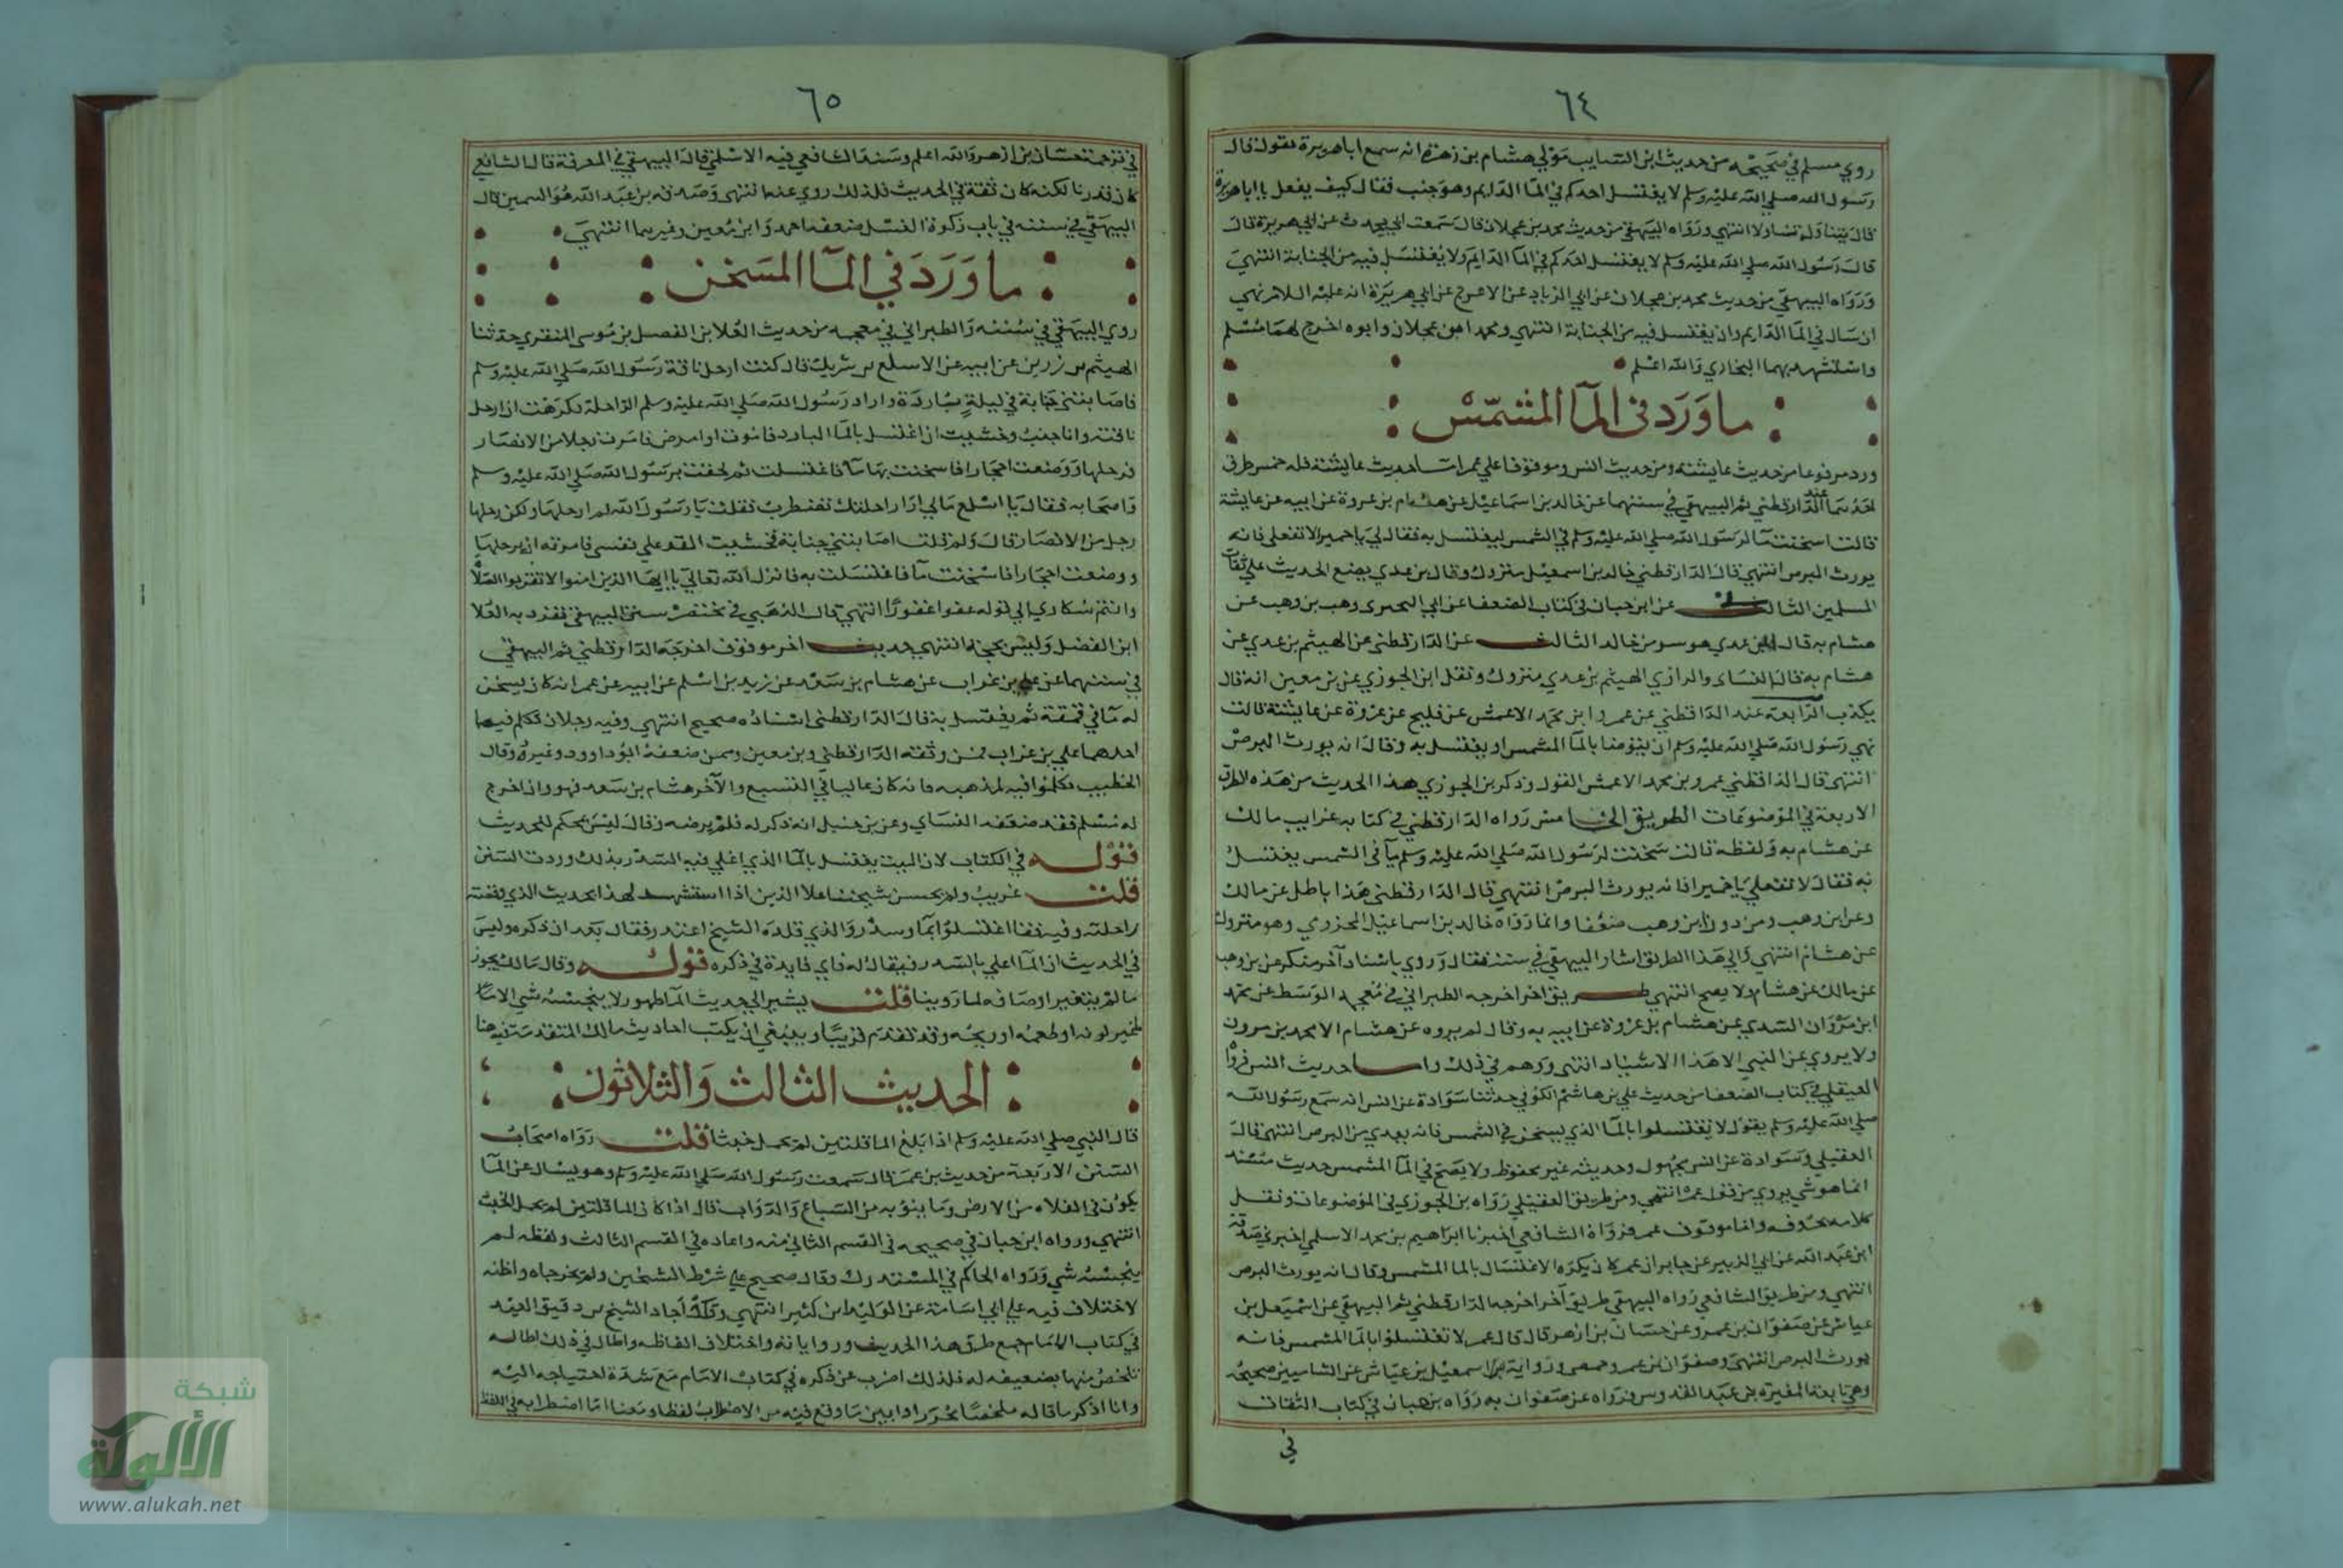 ٦٤
روي مسلم في صحيحه من حديث ابن السايب مولي هشام بن زهرة انه سمع ابا هريرة يقول قال
رسول الله صلي الله عليه وسلم لا يغتسل احدكم في المآ الدايم وهو جنب فقال كيف يفعل يا ابا هريرة
قال يتناوله تناولا انتهي ورواه البيهقي من حديث محمد بن عجلان قال سمعت ابي يحدث عن ابي هريرة قال
قال رسول الله صلي الله عليه وسلم لا يغتسل احدكم في المآ الدايم ولا يغتسل فيه من الجنابة انتهي
ورواه البيهقي من حديث محمد بن عجلان عن ابي الزناد عن الاعرج عن ابي هريرة انه عليه السلام نهي
ان يبال في المآ الدايم وان يغتسل فيه من الجنابة انتهي ومحمد ابن عجلان وابوه اخرج لهما مسلم
واستشهد بهما البخاري والله اعلم
ما ورد في المآ المشمّس
ورد مرفوعا من حديث عايشة ومن حديث انس وموقوفا علي عمر امـا حديث عايشة فله خمس طرق
احدها عند الدارقطني ثم البيهقي في سننهما عن خالد بن اسماعيل عن هشام بن عروة عن ابيه عن عايشة
قالت اسخنت مآ لرسول الله صلي الله عليه وسلم في الشمس ليغتسل به فقال لي يا حميرا لا تفعلي فانه
يورث البرص انتهي قال الدارقطني خالد بن اسمعيل متروك وقال بن عدي يضع الحديث علي ثقات
المسلمين عن ابن حبان في كتاب الضعفا عن ابي البختري وهب بن وهب عن
هشام به قال ابن عدي هو سو من خالد الثالث عن الدارقطني عن الهيثم بن عدي عن
هشام به قال النساى والرازي الهيثم بن عدي متروك ونقل ابن الجوزي عن بن معين انه قال
يكذب الرابعة عند الداقطني عن عمرو ابن محمد الاعمش عن فليح عن عروة عن عايشة قالت
نهي رسول الله صلي الله عليه وسلم ان يتوضا بالمآ المشمس او يغتسل به وقال انه يورث البرص
انتهي قال الداقطني عمرو بن محمد الاعمش وذكر بن الجوزي هذا الحديث من هذه الطرق
الاربعة في الموضوعات الطريق الخامس رواه الدارقطني في كتابه غرايب مالك
عن هشام به ولفظه قالت سخنت لرسول الله صلي الله عليه وسلم مآ في الشمس يغتسل
به فقال لا تفعلي يا حميرا فانه يورث البرص انتهي قال الدارقطني هذا باطل عن مالك
وعن ابن وهب ومن دون ابن وهب ضعفا وانما رواه خالد بن اسماعيل المخزومي وهو متروك
عن هشام انتهي والي هذا الطريق اشار البيهقي في سننه فقال وروي باسناد آخر منكر عن بن وهب
عن مالك عن هشام ولا يصح انتهي طريق اخر اخرجه الطبراني في معجمه الوسط عن محمد
ابن مروان السدي عن هشام بن عروة عن ابيه به وقال لم يروه عن هشام الا محمد بن مرون
ولا يروي عن النبي الا هذا الاسناد انتهي ووهم في ذلك واما حديث انس فرواه
العقيلي في كتاب الضعفا من حديث علي بن هاشم الكوفي حدثنا سوادة عن انس انه سمع رسول الله
صلي الله عليه وسلم يقول لا تغتسلوا بالمآ الذي يسخن في الشمس فانه يعدي من البرص انتهي قال
العقيلي وسوادة عن انس مجهول وحديثه غير محفوظ ولا يصح في المآ المشمس حديث مسند
انما هو شي يروي من قول عمر انتهي ومن طريق العقيلي رواه بن الجوزي في الموضوعات ونقل
كلامه بحروفه واما موقوف عمر فرواه الشافعي اخبرنا ابراهيم بن محمد الاسلمي اخبرني صدقة
ابن عبد الله عن ابي الزبير عن جابر ان عمر كان يكره الاغتسال بالما المشمس وقال انه يورث البرص
انتهي ومن طريق الشافعي رواه البيهقي طريق آخر اخرجه الدارقطني ثم البيهقي عن اسمعيل بن
عياش عن صفوان بن عمرو عن حسان بن ازهر قال قال عمر لا تغتسلوا بالمآ المشمس فانه
يورث البرص انتهي وصفوان بن عمرو حمصي ورواية اسمعيل بن عياش عن الشاميين صحيحة
وهي تابعه المغيره بن عبد القدوس فرواه عن صفوان به رواه بن حبان في كتاب الثقات
في
٦٥
في ترجمة حسان بن ازهر والله اعلم وسند الشافعي فيه الاسلمي قال البيهقي في المعرفة قال الشافعي
كان قدريا لكنه كان ثقة في الحديث فلذلك روي عنه انتهى وصدقه بن عبد الله هو السمين قال
البيهقي في سننه في باب زكوة العسل ضعفه احمد وابن معين وغيرهما انتهي
ما ورد في المآ المسخن
روي البيهقي في سننه والطبراني في معجمه من حديث العلا بن الفضل بن موسى المنقري حدثنا
الهيثم بن زريق عن ابيه عن الاسلع بن شريك قال كنت ارحل ناقة رسول الله صلي الله عليه وسلم
فاصابتني جنابة في ليلة باردة واراد رسول الله صلي الله عليه وسلم الراحلة فكرهت ان ارحل
ناقته وانا جنب وخشيت ان اغتسل بالمآ البارد فاموت او امرض فامرت رجلا من الانصار
فرحلها ووضعت احجارا فاسخنت بها مآ فاغتسلت ثم لحقت برسول الله صلي الله عليه وسلم
واصحابه فقال يا اسلع مالي ارا راحلتك تضطرب فقلت يا رسول الله لم ارحلها ولكن رحلها
رجل من الانصار قال ولم قلت اصابتني جنابة فخشيت القر علي نفسي فامرته ان يرحلها
ووضعت احجارا فاسخنت مآ فاغتسلت به فانزل الله تعالي يا ايها الذين امنوا لا تقربوا الصلاة
وانتم سكاري الي قوله عفوا غفورًا انتهي قال الذهبي في مختصر سنن البيهقي تفرد به العلا
ابن الفضل وليس بحجة انتهي حديث اخر موقوف اخرجه الدارقطني ثم البيهقي
في سننهما عن علي بن غراب عن هشام بن سعد عن زيد بن اسلم عن ابيه عن عمر انه كان يسخن
له مآ في قمقمة ثم يغتسل به قال الدارقطني اسناده صحيح انتهي وفيه رجلان تكلم فيهما
احدهما علي بن غراب فمن وثقه الدارقطني وبن معين وممن ضعفه ابو داوود وغيره وقال
الخطيب تكلموا فيه لمذهبه فانه كان غاليا في التشيع والآخر هشام بن سعد فهو وان اخرج
له مسلم فقد ضعفه النساي وعن بن حنبل انه ذكر له فلم يرضه وقال ليس بمحكم للحديث
قوله في الكتاب لان الميت يغتسل بالمآ الذي اغلي فيه السدر بذلك وردت السنن
قلت غريب ولم يحسن شيخنا علا الذين اذا استشهد لهذا بحديث الذي وقصته
راحلته وفيه فقا اغتسلوا بمآ وسدر والذي قلده الشيخ اعتذر فقال بعد ان ذكره وليس
في الحديث ان المآ اغلي بالسدر فيقال له فاي فايدة في ذكره قوله وقال مالك يجوز
ما لم يتغير اوصافه لما روينا قلت يشير الي حديث المآ طهور لا ينجسه شي الا ما
غير لونه او طعمه او ريحه وقد تقدم قريبًا وينبغي ان يكتب احاديث مالك المتقدمة هنا
الحديث الثالث والثلاثون
قال النبي صلي الله عليه وسلم اذا بلغ الما قلتين لم يحمل خبثا قلت رواه اصحاب
السنن الاربعة من حديث بن عمر قال سمعت رسول الله صلي الله عليه وسلم وهو يسال عن المآ
يكون في الفلاه من الارض وما ينوبه من السباع والدواب قال اذا كان الما قلتين لم يحمل الخبث
انتهي ورواه ابن حبان في صحيحه في القسم الثاني منه واعاده في القسم الثالث ولفظه لم
ينجسه شي ورواه الحاكم في المستدرك وقال صحيح علي شرط الشيخين ولم يخرجاه واظنه
لاختلاف فيه علي ابي اسامة عن الوليد ابن كثير انتهي وقد اجاد الشيخ بن دقيق العيد
في كتاب الامام جمع طرق هذا الحديث ورواياته واختلاف الفاظه واطال في ذلك اطاله
تلخص منها تضعيفه له فلذلك اضرب عن ذكره في كتاب الالمام مع شدة احتياجه اليه
وانا اذكر ما قاله ملخصًا محررا وابين ما وقع فيه من الاضطراب لفظا ومعنا اما اضطرابه في اللفظ
شبكة
الألوكة
www.alukah.net